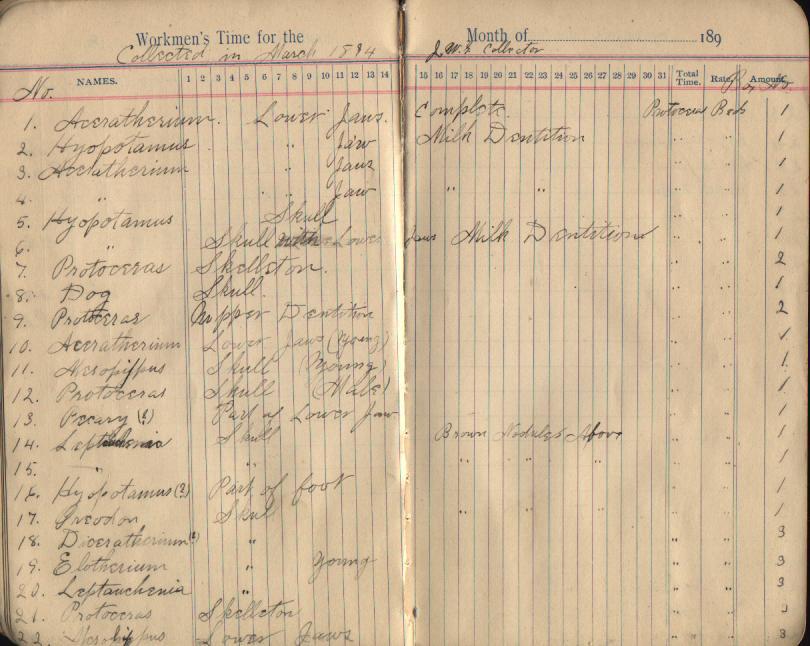 Workmen's Time for the Month of 189
Collected in March 1894 J.W.G. Collector
No. NAMES. 1 2 3 4 5 6 7 8 9 10 11 12 13 14 15 16 17 18 19 20 21 22 23 24 25 26 27 28 29 30 31 Total Time. Rate. Amount. Box No.
1. Aceratherium. Lower Jaws. Complete. Protoceras Beds 1
2. Hyopotamus " Jaw Milk Dentition 1
3. Aceratherium Jaws 1
4. " " " Jaw " " " " 1
5. Hyopotamus Skull " " 1
6. " Skull with Lower Jaws Milk Dentition " " 1
7. Protoceras Skelleton. " " 2
8. Dog Skull. " " 1
9. Protoceras Upper Dentition " " 2
10. Aceratherium Lower Jaws (Young) " " 1
11. Mesohippus Skull (Young) " " 1
12. Protoceras Skull (Male) " " 1
13. Pecary (?) Part of Lower Jaw " " 1
14. Skull Brown Nodules Above " " 1
15. " " " " " " " 1
16. Hyopotamus (?) Part of foot " " 1
17. Oreodon Skull " " " " " 1
18. Diceratherium (?) " " " 3
19. Elotherium " Young " " 3
20. Leptauchenia " " " 3
21. Protoceras Skelleton " " 3
22. Mesohippus Lower Jaws " " 3